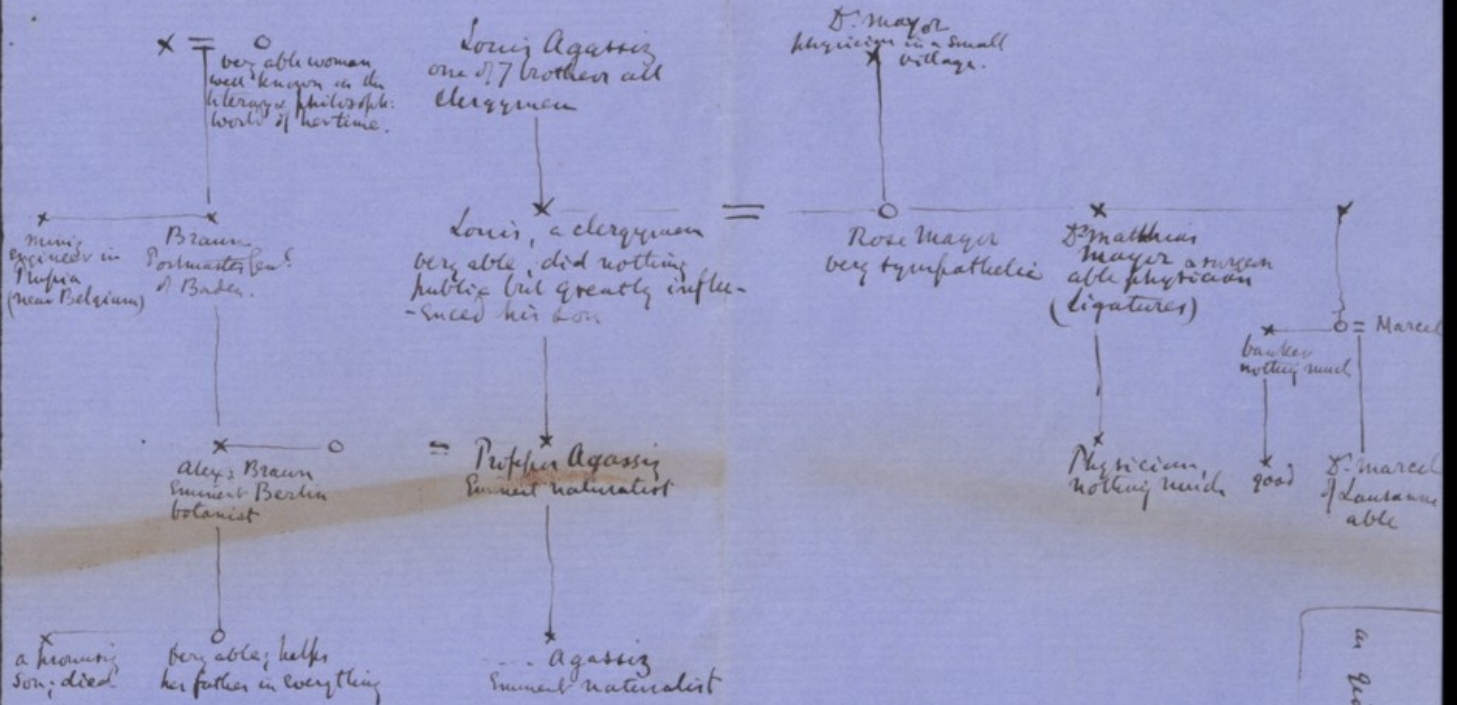 very able woman
well known in the
literary & philosoph:
world of her time.
Louis Agassiz
one of 7 brothers all
clergymen
Dr. Mayor
physician in a small
village.
mining
engineer in
(near Belgium)
Braun
Postmaster Genl.
of Baden.
Louis, a clergyman
very able, did nothing
public but greatly influ-
-enced his son
Rose Mayor
very sympathetic
Dr Matthias
Mayor a surgeon
able physician
(ligatures)
= Marcel
banker
nothing much
Alexr Braun
Eminent Berlin
botanist
= Professor Agassiz
Eminent naturalist
Physician,
nothing much
good
Dr. Marcel
of Lausanne
able
a promising
son; died
Very able; helps
her father in everything
... Agassiz
Eminent naturalist